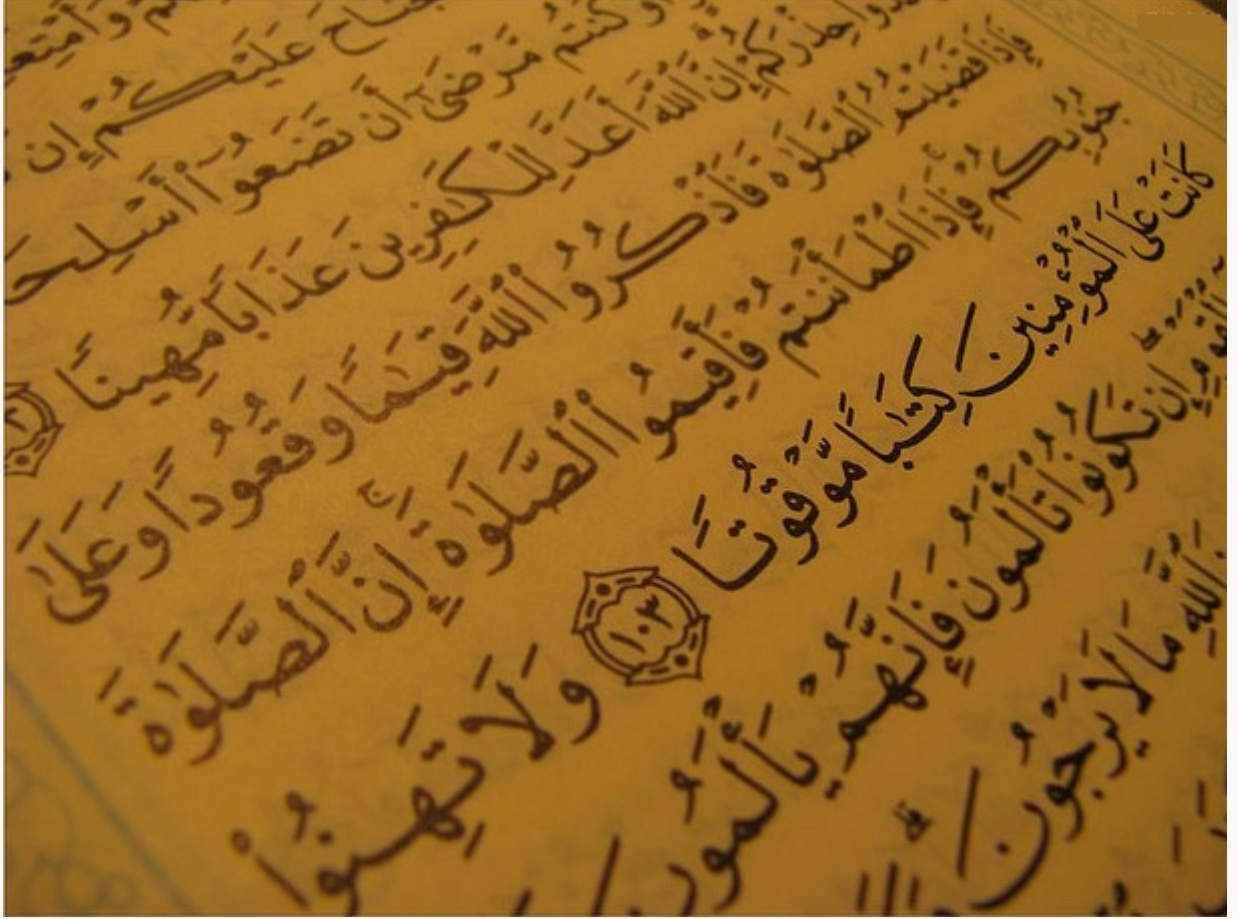 وَأَمْتِعَ
جُنَاحَ عَلَيْكُمْ إِن
أَوْ كُنتُم مَّرْضَىٰٓ أَن تَضَعُوٓا۟ أَسْلِحَ
حِذْرَكُمْ إِنَّ ٱللَّهَ أَعَدَّ لِلْكَٰفِرِينَ عَذَابًا مُّهِينًا
فَإِذَا قَضَيْتُمُ ٱلصَّلَوٰةَ فَٱذْكُرُوا۟ ٱللَّهَ قِيَٰمًا وَقُعُودًا وَعَلَىٰ
جُنُوبِكُمْ فَإِذَا ٱطْمَأْنَنتُمْ فَأَقِيمُوا۟ ٱلصَّلَوٰةَ إِنَّ ٱلصَّلَوٰةَ
كَانَتْ عَلَى ٱلْمُؤْمِنِينَ كِتَٰبًا مَّوْقُوتًا ١٠٣ وَلَا تَهِنُوا۟
ٱلْقَوْمِ إِن تَكُونُوا۟ تَأْلَمُونَ فَإِنَّهُمْ يَأْلَمُونَ
ٱللَّهِ مَا لَا يَرْجُونَ